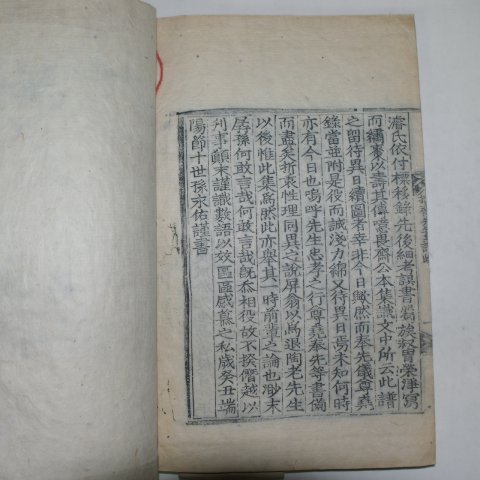 濬氏依付標移錄先後細考誤書簡族叔胄榮淨寫
而繡棗以壽其傳噫畏齋公本集識文中所云此譜
之留待異日續圖者幸非今日歟然而奉先儀尊堯
錄當並附是役而誠淺力綿又待異日焉未知何時
亦有今日也嗚呼先生忠孝之行尊堯奉先等書備
而盡矣折衷性理同異之說屏翁以爲退陶老先生
以後惟此集爲然此亦與其一時前輩之論也渺末
孱孫何敢言哉何敢言哉旣忝相役故不揆僭越以
刊事顚末謹識數語以效區區感慕之私歲癸丑端
陽節十世孫永佑謹書